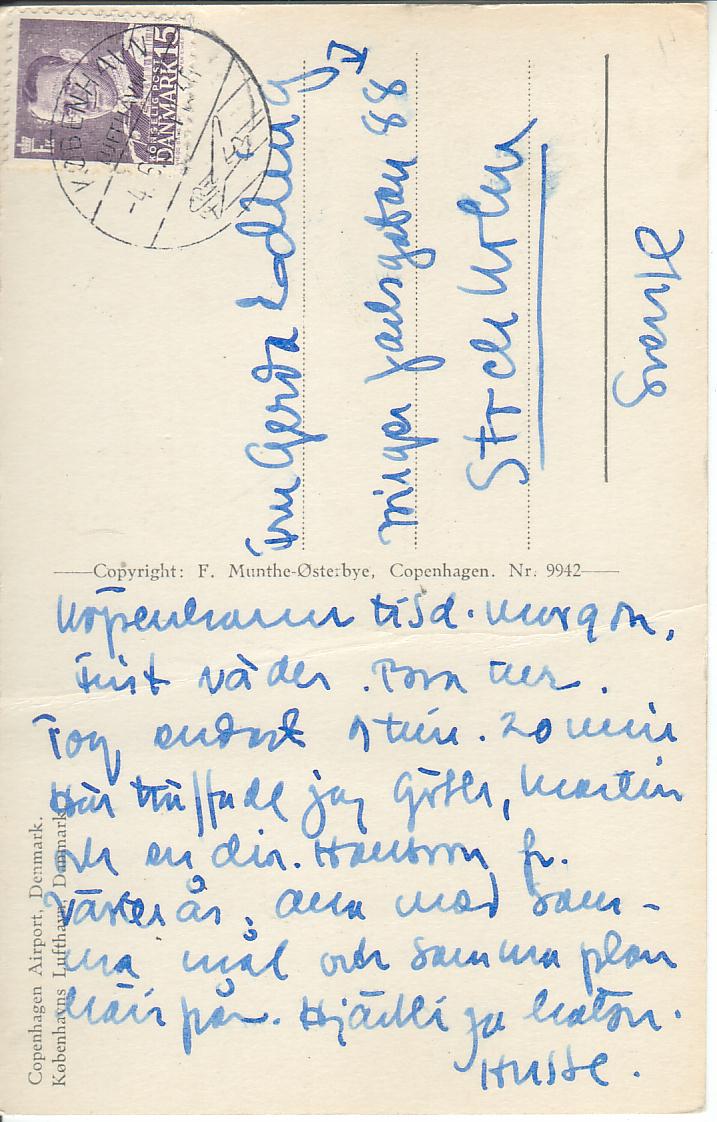 KØBENHAVN
LUFTHAVN
DANMARK 15
Fru Gerda Edling
Birger Jarlsgatan 88
V
Stockholm
Sverige
Copyright: F. Munthe-Østerbye, Copenhagen. Nr. 9942
Copenhagen Airport, Denmark.
Københavns Lufthavn, Danmark.
Köpenhamn tisd. morgon.
Fint väder. Bra tur.
Tog endast 1 tim. 20 min
Här träffade jag Gösta, Martin
och en dir. from fr.
Västerås, alla med sam-
ma mål och samma plan
härifrån. Hjärtliga
Husse.